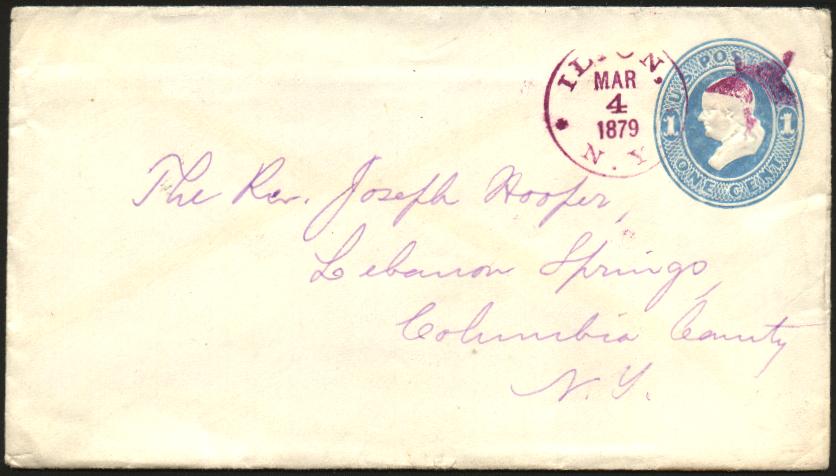 ILION,
MAR
4
1879
N.Y.
U.S. PO
1 1
ONE CENT
The Rev. Joseph Hooper,
Lebanon Springs,
Columbia County
N.Y.